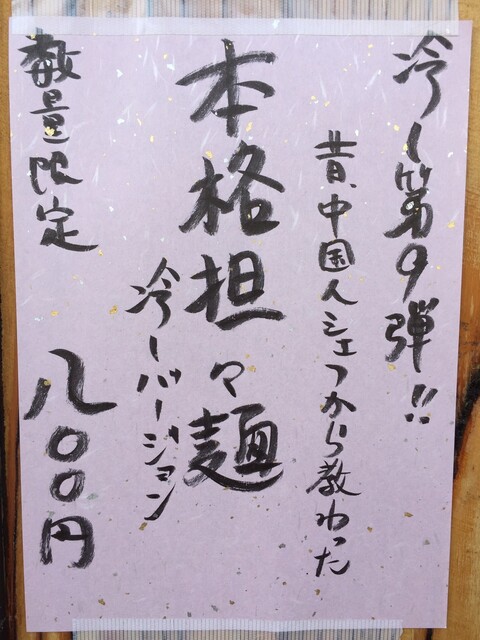 冷し第9弾!!
昔、中国人シェフから教わった
本格担々麺
冷しバージョン
数量限定 八〇〇円